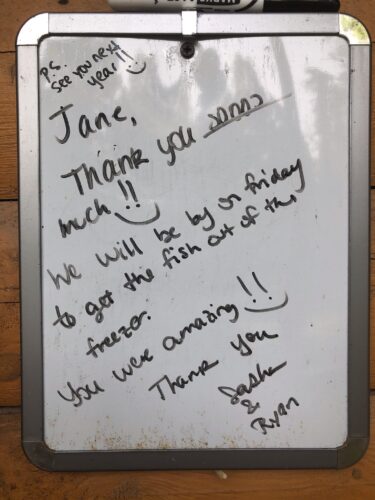 P.S.
See you next
year!!
Jane,
Thank you sooooo
much!!
We will be by on friday
to get the fish out of the
freezer.
You were amazing!!
Thank you
Sasha
&
Ryan